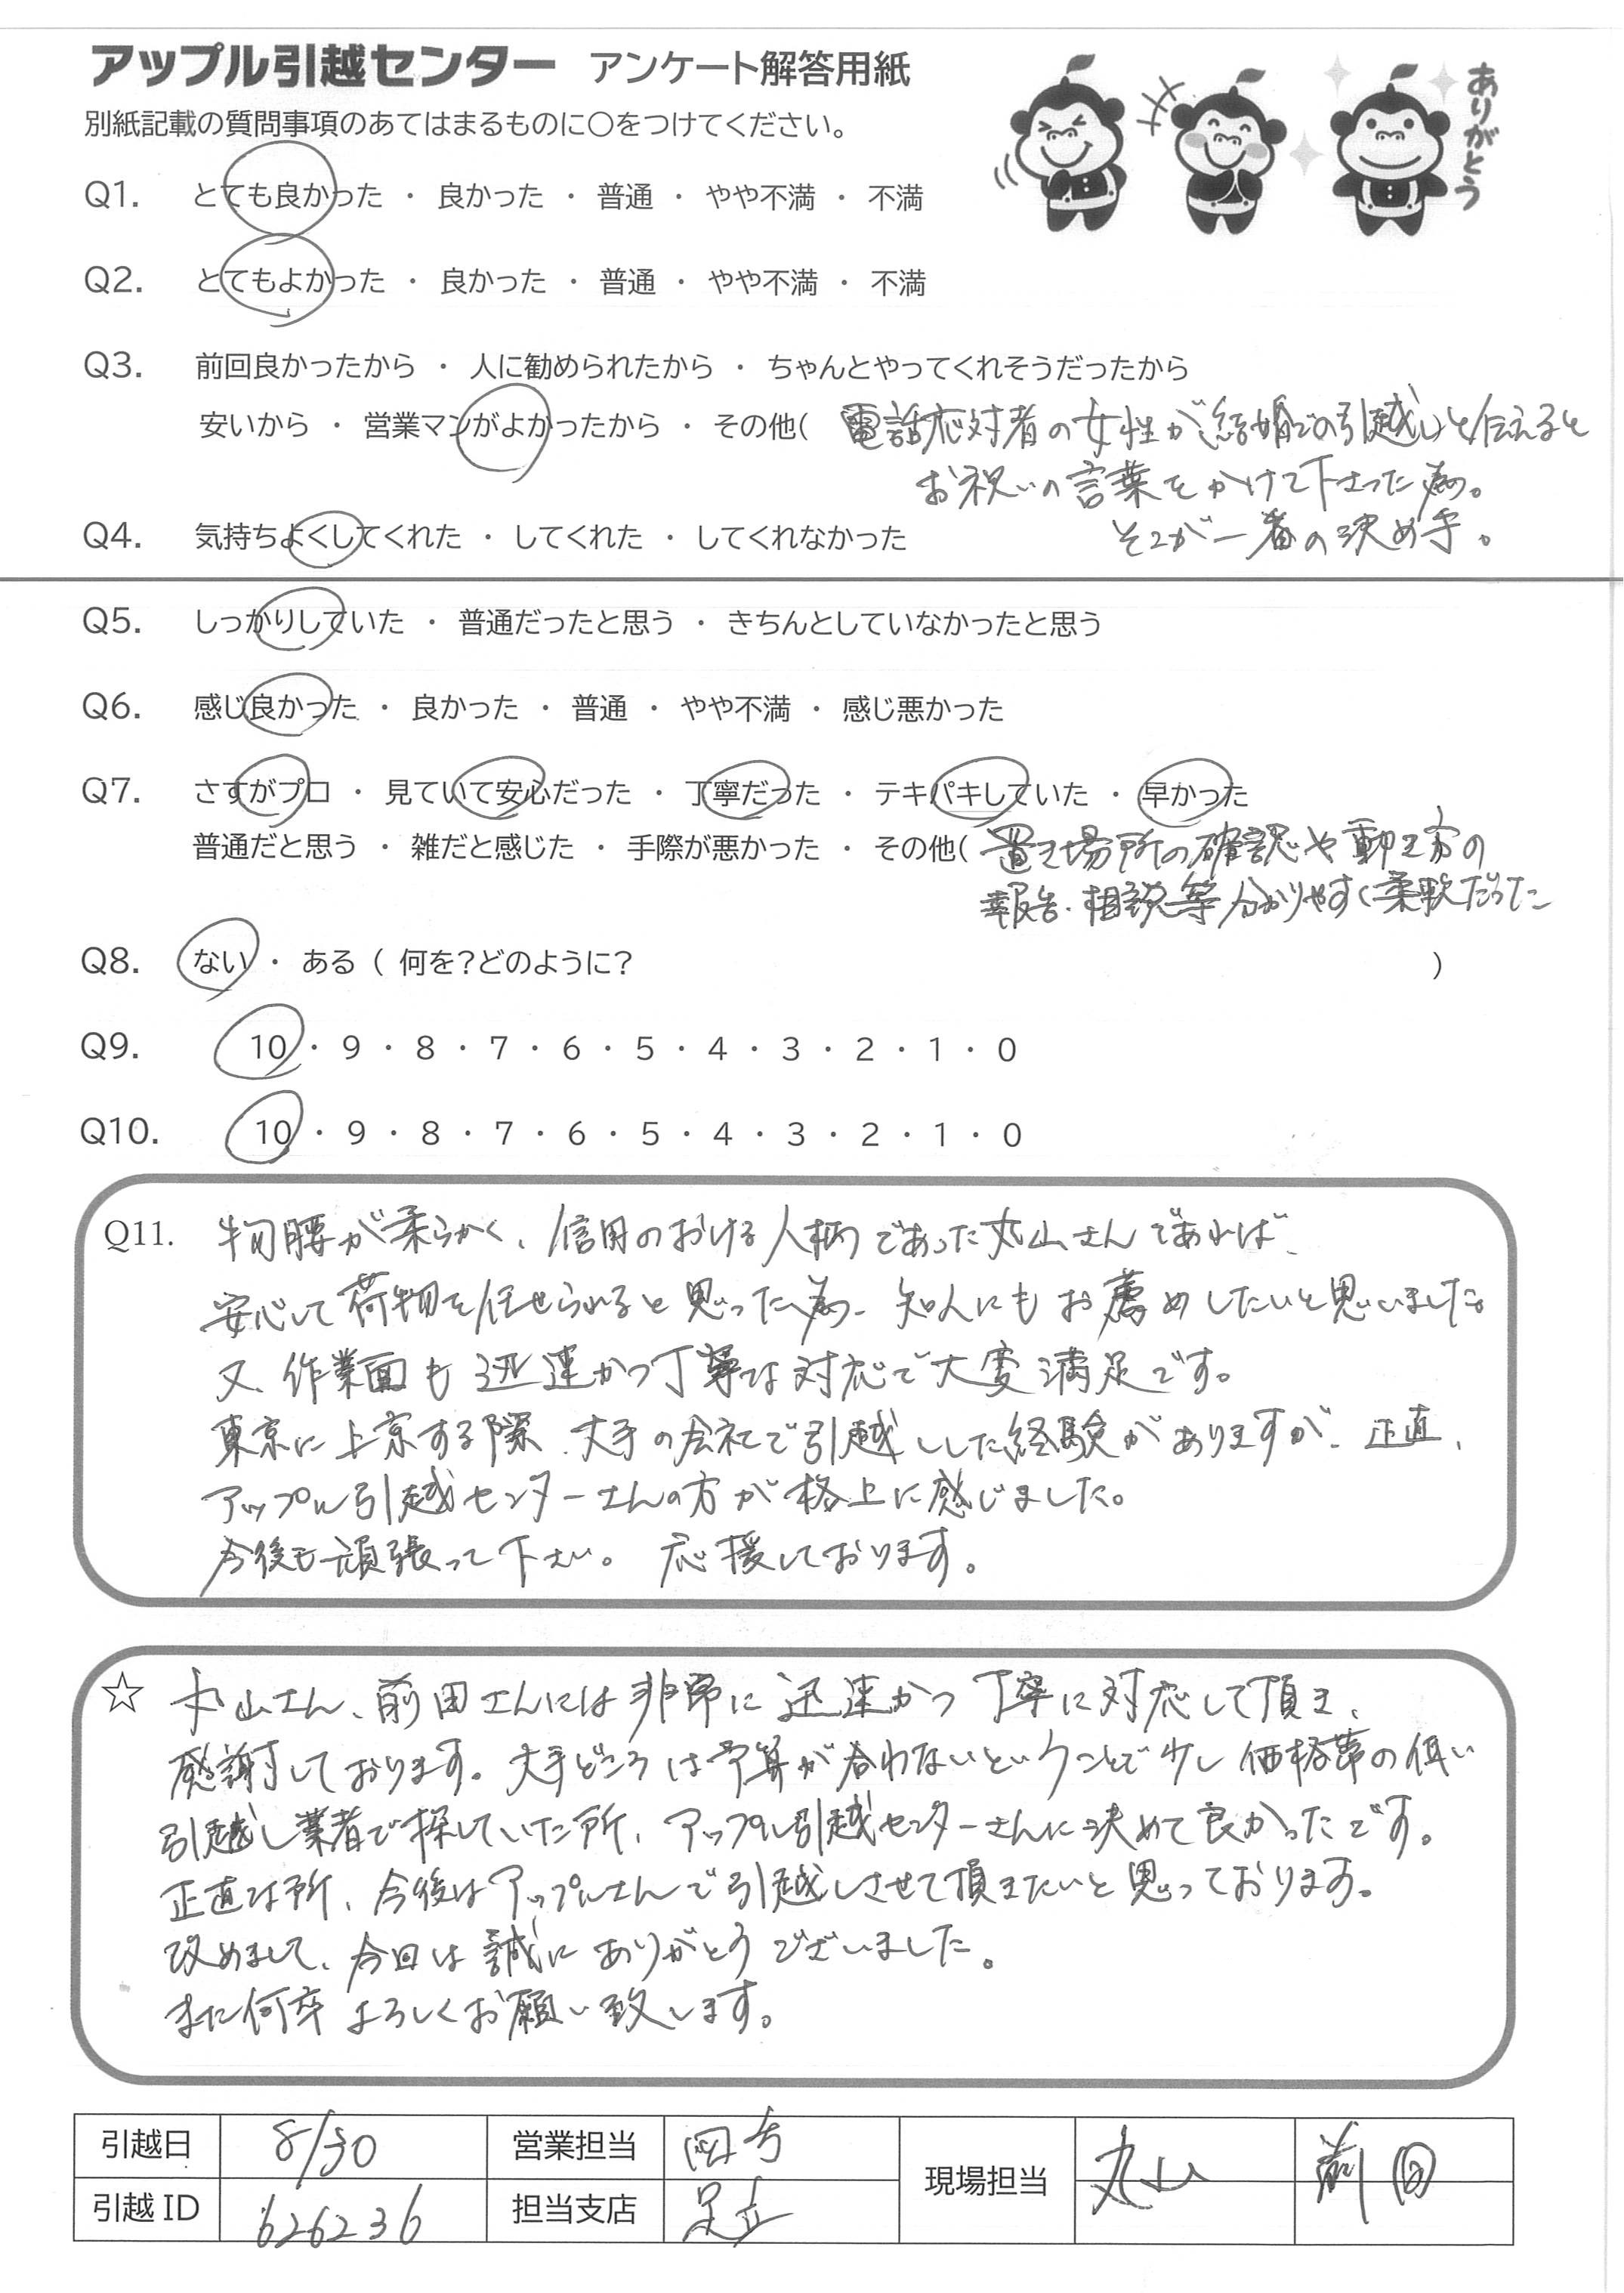 アップル引越センター アンケート解答用紙
ありがとう
別紙記載の質問事項のあてはまるものに○をつけてください。
Q1. とても良かった ・ 良かった ・ 普通 ・ やや不満 ・ 不満
Q2. とてもよかった ・ 良かった ・ 普通 ・ やや不満 ・ 不満
Q3. 前回良かったから ・ 人に勧められたから ・ ちゃんとやってくれそうだったから
安いから ・ 営業マンがよかったから ・ その他( 電話応対者の女性が「結婚での引越し」と伝えると
お祝いの言葉をかけて下さった為。
そこが一番の決め手。
Q4. 気持ちよくしてくれた ・ してくれた ・ してくれなかった
Q5. しっかりしていた ・ 普通だったと思う ・ きちんとしていなかったと思う
Q6. 感じ良かった ・ 良かった ・ 普通 ・ やや不満 ・ 感じ悪かった
Q7. さすがプロ ・ 見ていて安心だった ・ 丁寧だった ・ テキパキしていた ・ 早かった
普通だと思う ・ 雑だと感じた ・ 手際が悪かった ・ その他( 置き場所の確認や動き方の
報告・相談等分かりやすく柔軟だった
Q8. ない ・ ある ( 何を?どのように? )
Q9. 10 ・ 9 ・ 8 ・ 7 ・ 6 ・ 5 ・ 4 ・ 3 ・ 2 ・ 1 ・ 0
Q10. 10 ・ 9 ・ 8 ・ 7 ・ 6 ・ 5 ・ 4 ・ 3 ・ 2 ・ 1 ・ 0
Q11. 物腰が柔らかく、信用のおける人柄であった丸山さんであれば、
安心して荷物を任せられると思った為、知人にもお薦めしたいと思いました。
又、作業面も迅速かつ丁寧な対応で大変満足です。
東京に上京する際、大手の会社で引越しした経験がありますが、正直、
アップル引越センターさんの方が格上に感じました。
今後も頑張って下さい。 応援しております。
☆ 丸山さん、前田さんには非常に迅速かつ丁寧に対応して頂き、
感謝しております。大手どころは予算が合わないということで少し価格帯の低い
引越し業者で探していた所、アップル引越センターさんに決めて良かったです。
正直な所、今後はアップルさんで引越しさせて頂きたいと思っております。
改めまして、今回は誠にありがとうございました。
また何卒よろしくお願い致します。
引越日 8/30 営業担当 現場担当 丸山 前田
引越ID 626236 担当支店 足立